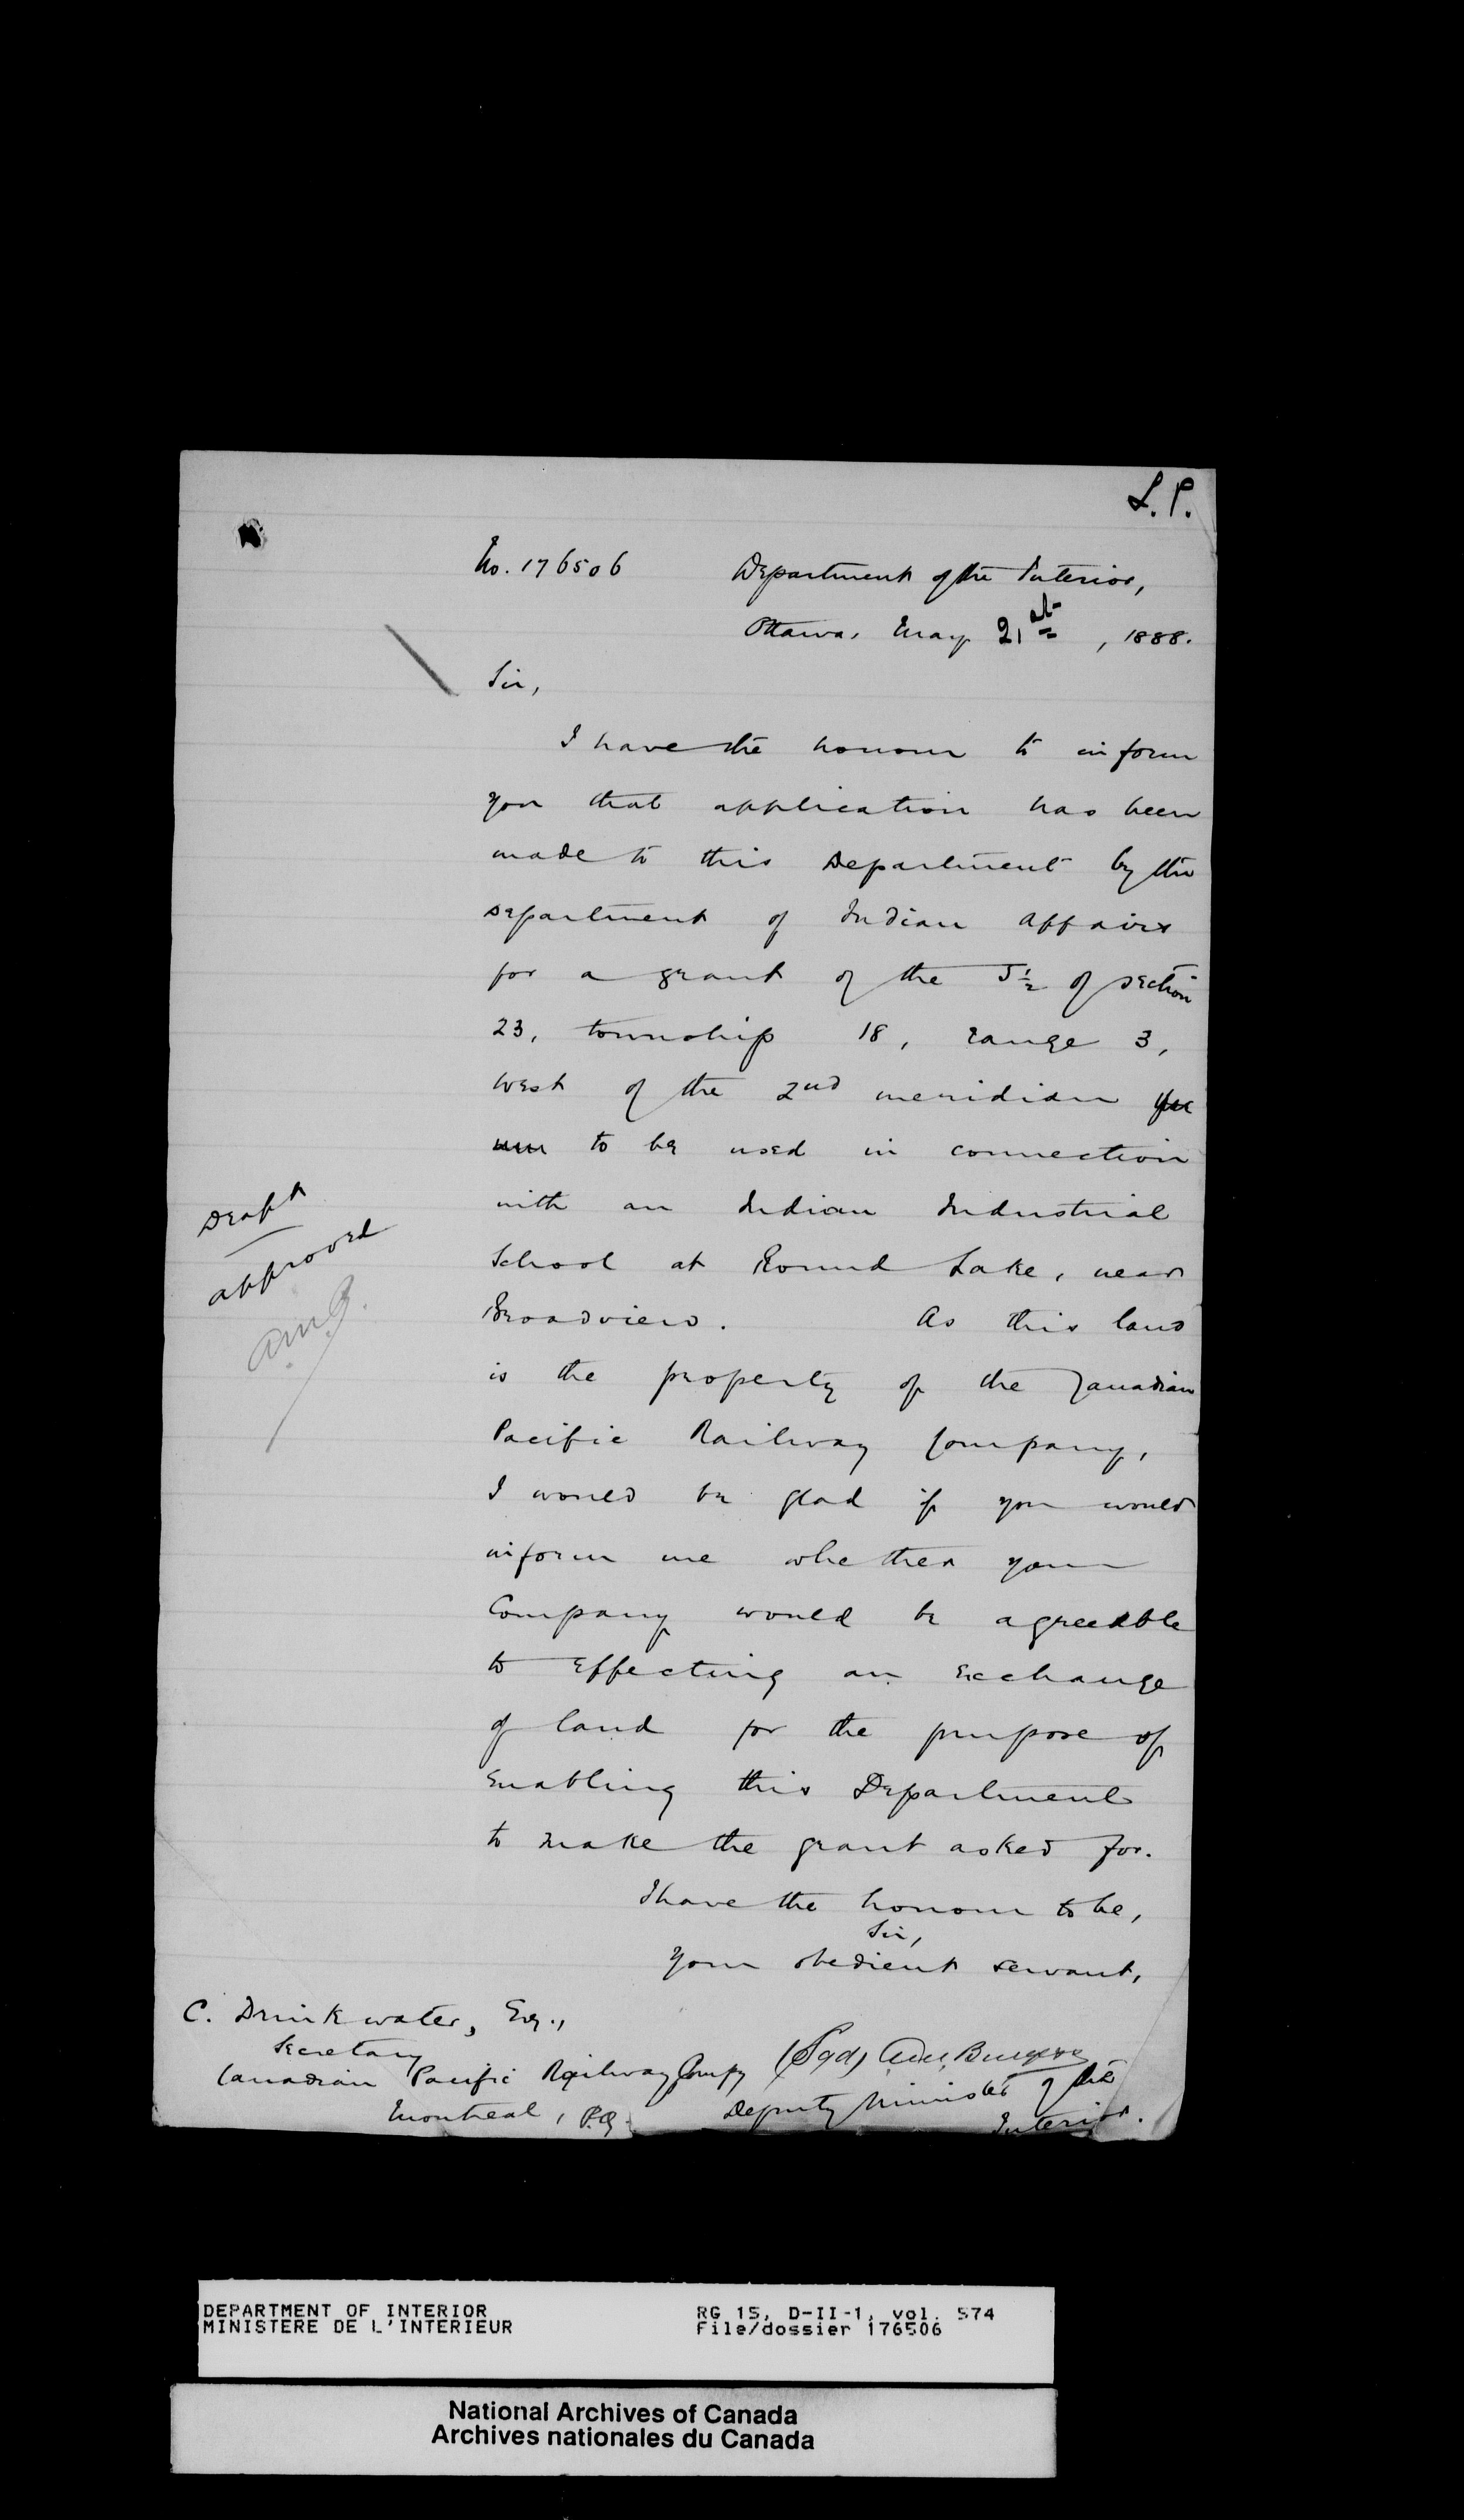 L.P.
No. 176506 Department of the Interior,
Ottawa, May 21st, 1888.
Sir,
I have the honour to inform
you that application has been
made to this Department by the
Department of Indian Affairs
for a grant of the S½ of section
23, township 18, range 3,
west of the 2nd meridian
to be used in connection
with an Indian Industrial
School at Round Lake, near
Broadview. As this land
is the property of the Canadian
Pacific Railway Company,
I would be glad if you would
inform me whether your
Company would be agreeable
to effecting an exchange
of land for the purpose of
enabling this Department
to make the grant asked for.
I have the honour to be,
Sir,
Your obedient servant,
Draft
approved
A.M.B.
C. Drinkwater, Esq.,
Secretary
Canadian Pacific Railway Compy
Montreal, P.Q.
(Sgd) A. M. Burgess
Deputy Minister of the
Interior.
DEPARTMENT OF INTERIOR RG 15, D-II-1, vol. 574
MINISTERE DE L'INTERIEUR File/dossier 176506
National Archives of Canada
Archives nationales du Canada